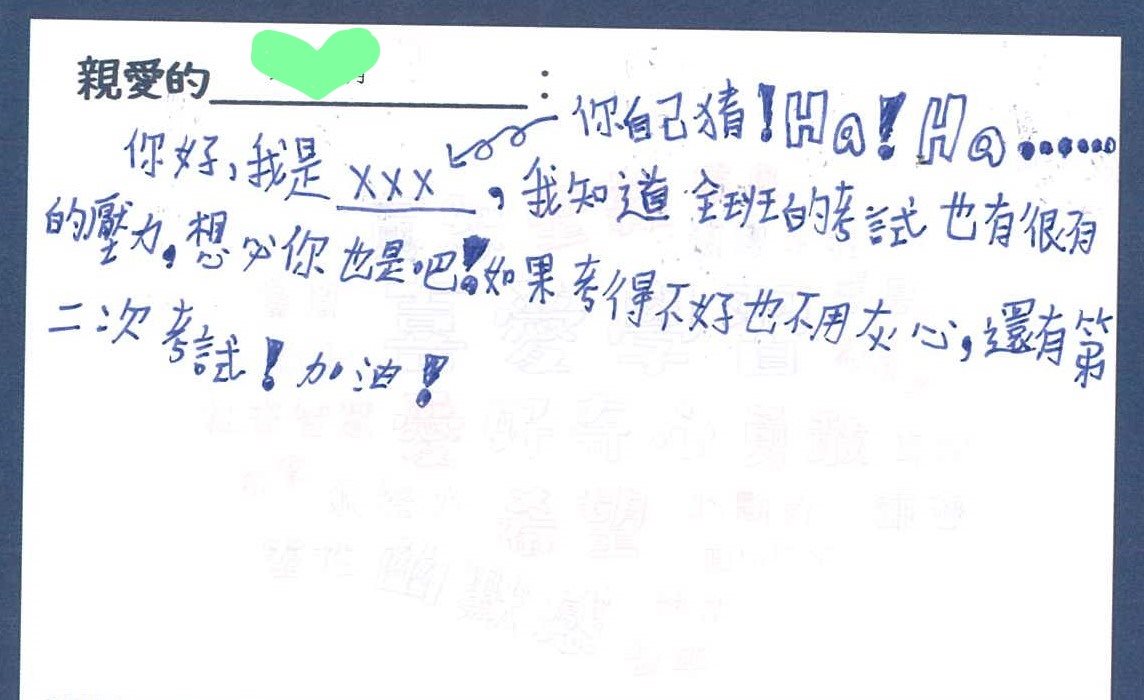 親愛的＿＿＿＿＿：
你自己猜！Ha！Ha......
你好，我是XXX，我知道全班的考試也有很有
的壓力，想必你也是吧！如果考得不好也不用灰心，還有第
二次考試！加油！